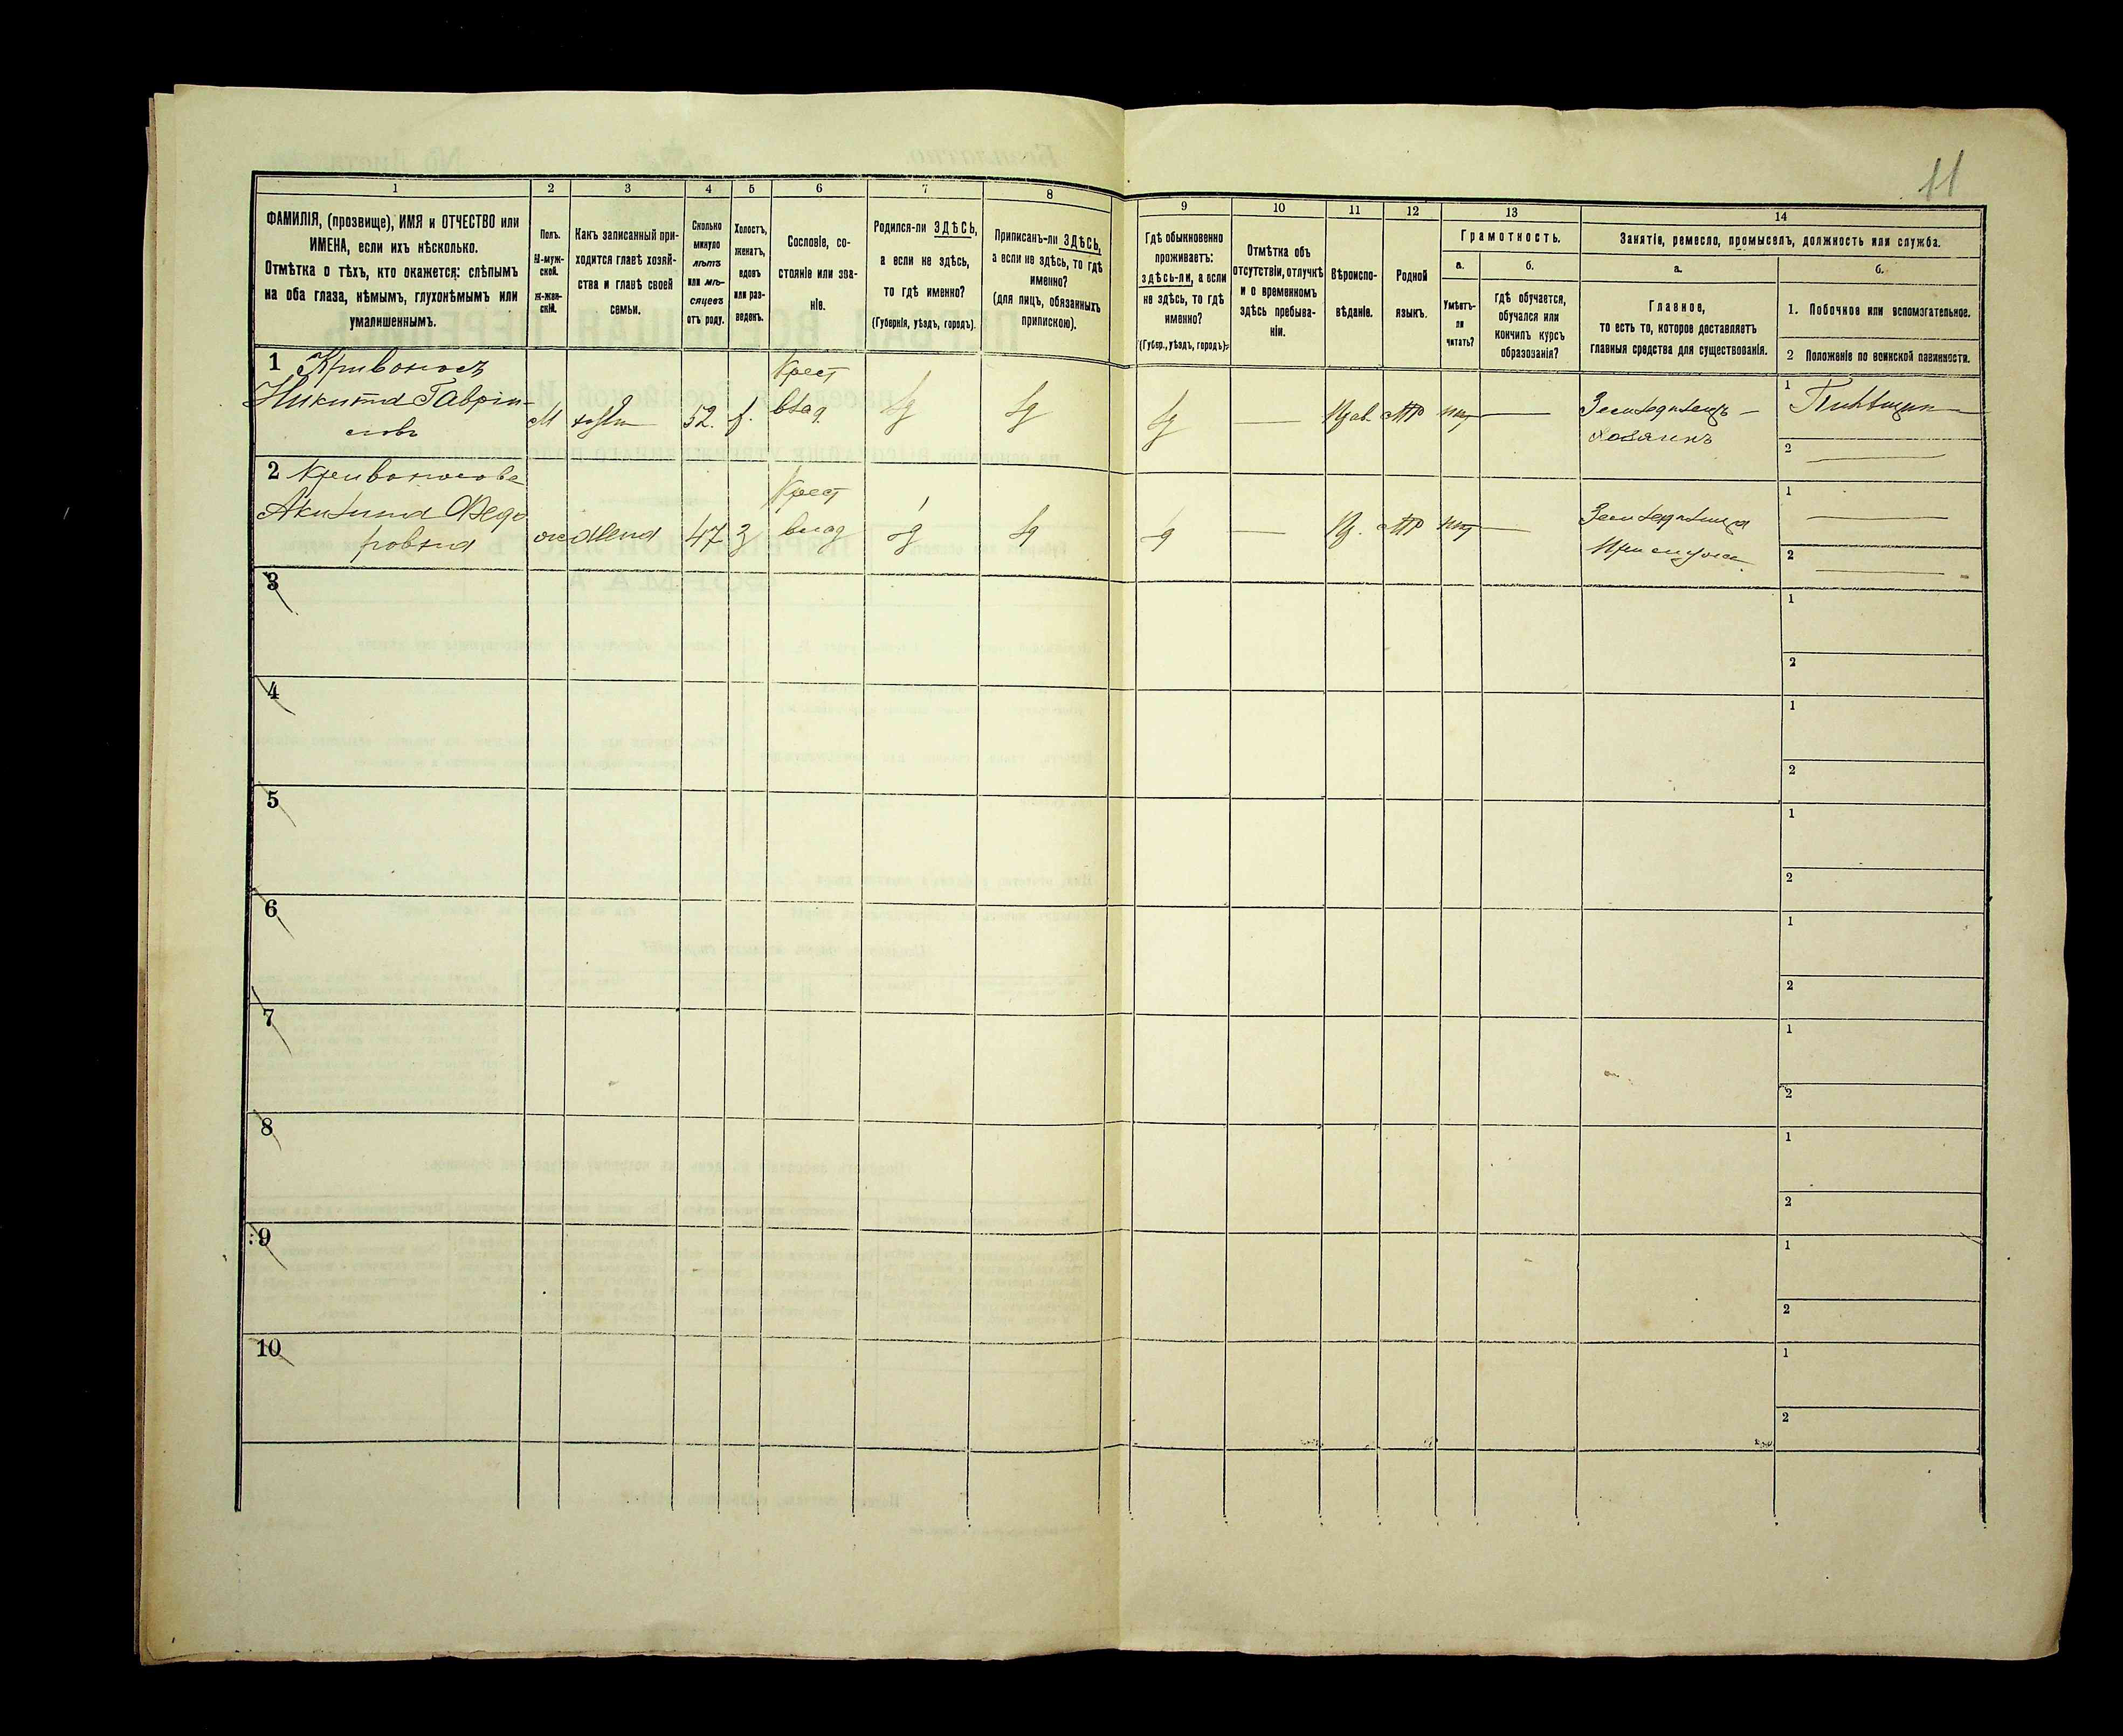 11
1 2 3 4 5 6 7 8 9 10 11 12 13 14
ФАМИЛІЯ, (прозвище), ИМЯ и ОТЧЕСТВО или
ИМЕНА, если ихъ нѣсколько.
Отмѣтка о тѣхъ, кто окажется: слѣпымъ
на оба глаза, нѣмымъ, глухонѣмымъ или
умалишеннымъ.
Полъ.
М-муж-
ской.
ж-жен-
скій.
Какъ записанный при-
ходится главѣ хозяй-
ства и главѣ своей
семьи.
Сколько
минуло
лѣтъ
или мѣ-
сяцевъ
отъ роду.
Холостъ,
женатъ,
вдовъ
или раз-
веденъ.
Сословіе, со-
стояніе или зва-
ніе.
Родился-ли ЗДѢСЬ,
а если не здѣсь,
то гдѣ именно?
(Губернія, уѣздъ, городъ).
Приписанъ-ли ЗДѢСЬ,
а если не здѣсь, то гдѣ
именно?
(для лицъ, обязанныхъ
припискою).
Гдѣ обыкновенно
проживаетъ:
здѣсь-ли, а если
не здѣсь, то гдѣ
именно?
(Губер., уѣздъ, городъ).
Отмѣтка объ
отсутствіи, отлучкѣ
и о временномъ
здѣсь пребыва-
ніи.
Вѣроиспо-
вѣданіе.
Родной
языкъ.
Грамотность.
а.
Умѣетъ-
ли
читать?
б.
гдѣ обучается,
обучался или
кончилъ курсъ
образованія?
Занятіе, ремесло, промыселъ, должность или служба.
а.
Главное,
то есть то, которое доставляетъ
главныя средства для существованія.
б.
1. Побочное или вспомогательное.
2 Положеніе по воинской повинности.
1 Кривоносъ
Никита Гаврі-
ловъ
М
52.
Крест
влад.
Прав.
МР
нѣт
Земледѣлецъ
Хозяинъ
1
2
2 Кривоносова
Акилина Федо
ровна
ж
жена
47
з
Крест
влад
Пр.
МР
нѣт
Земледѣлица
1
2
3
1
2
4
1
2
5
1
2
6
1
2
7
1
2
8
1
2
9
1
2
10
1
2